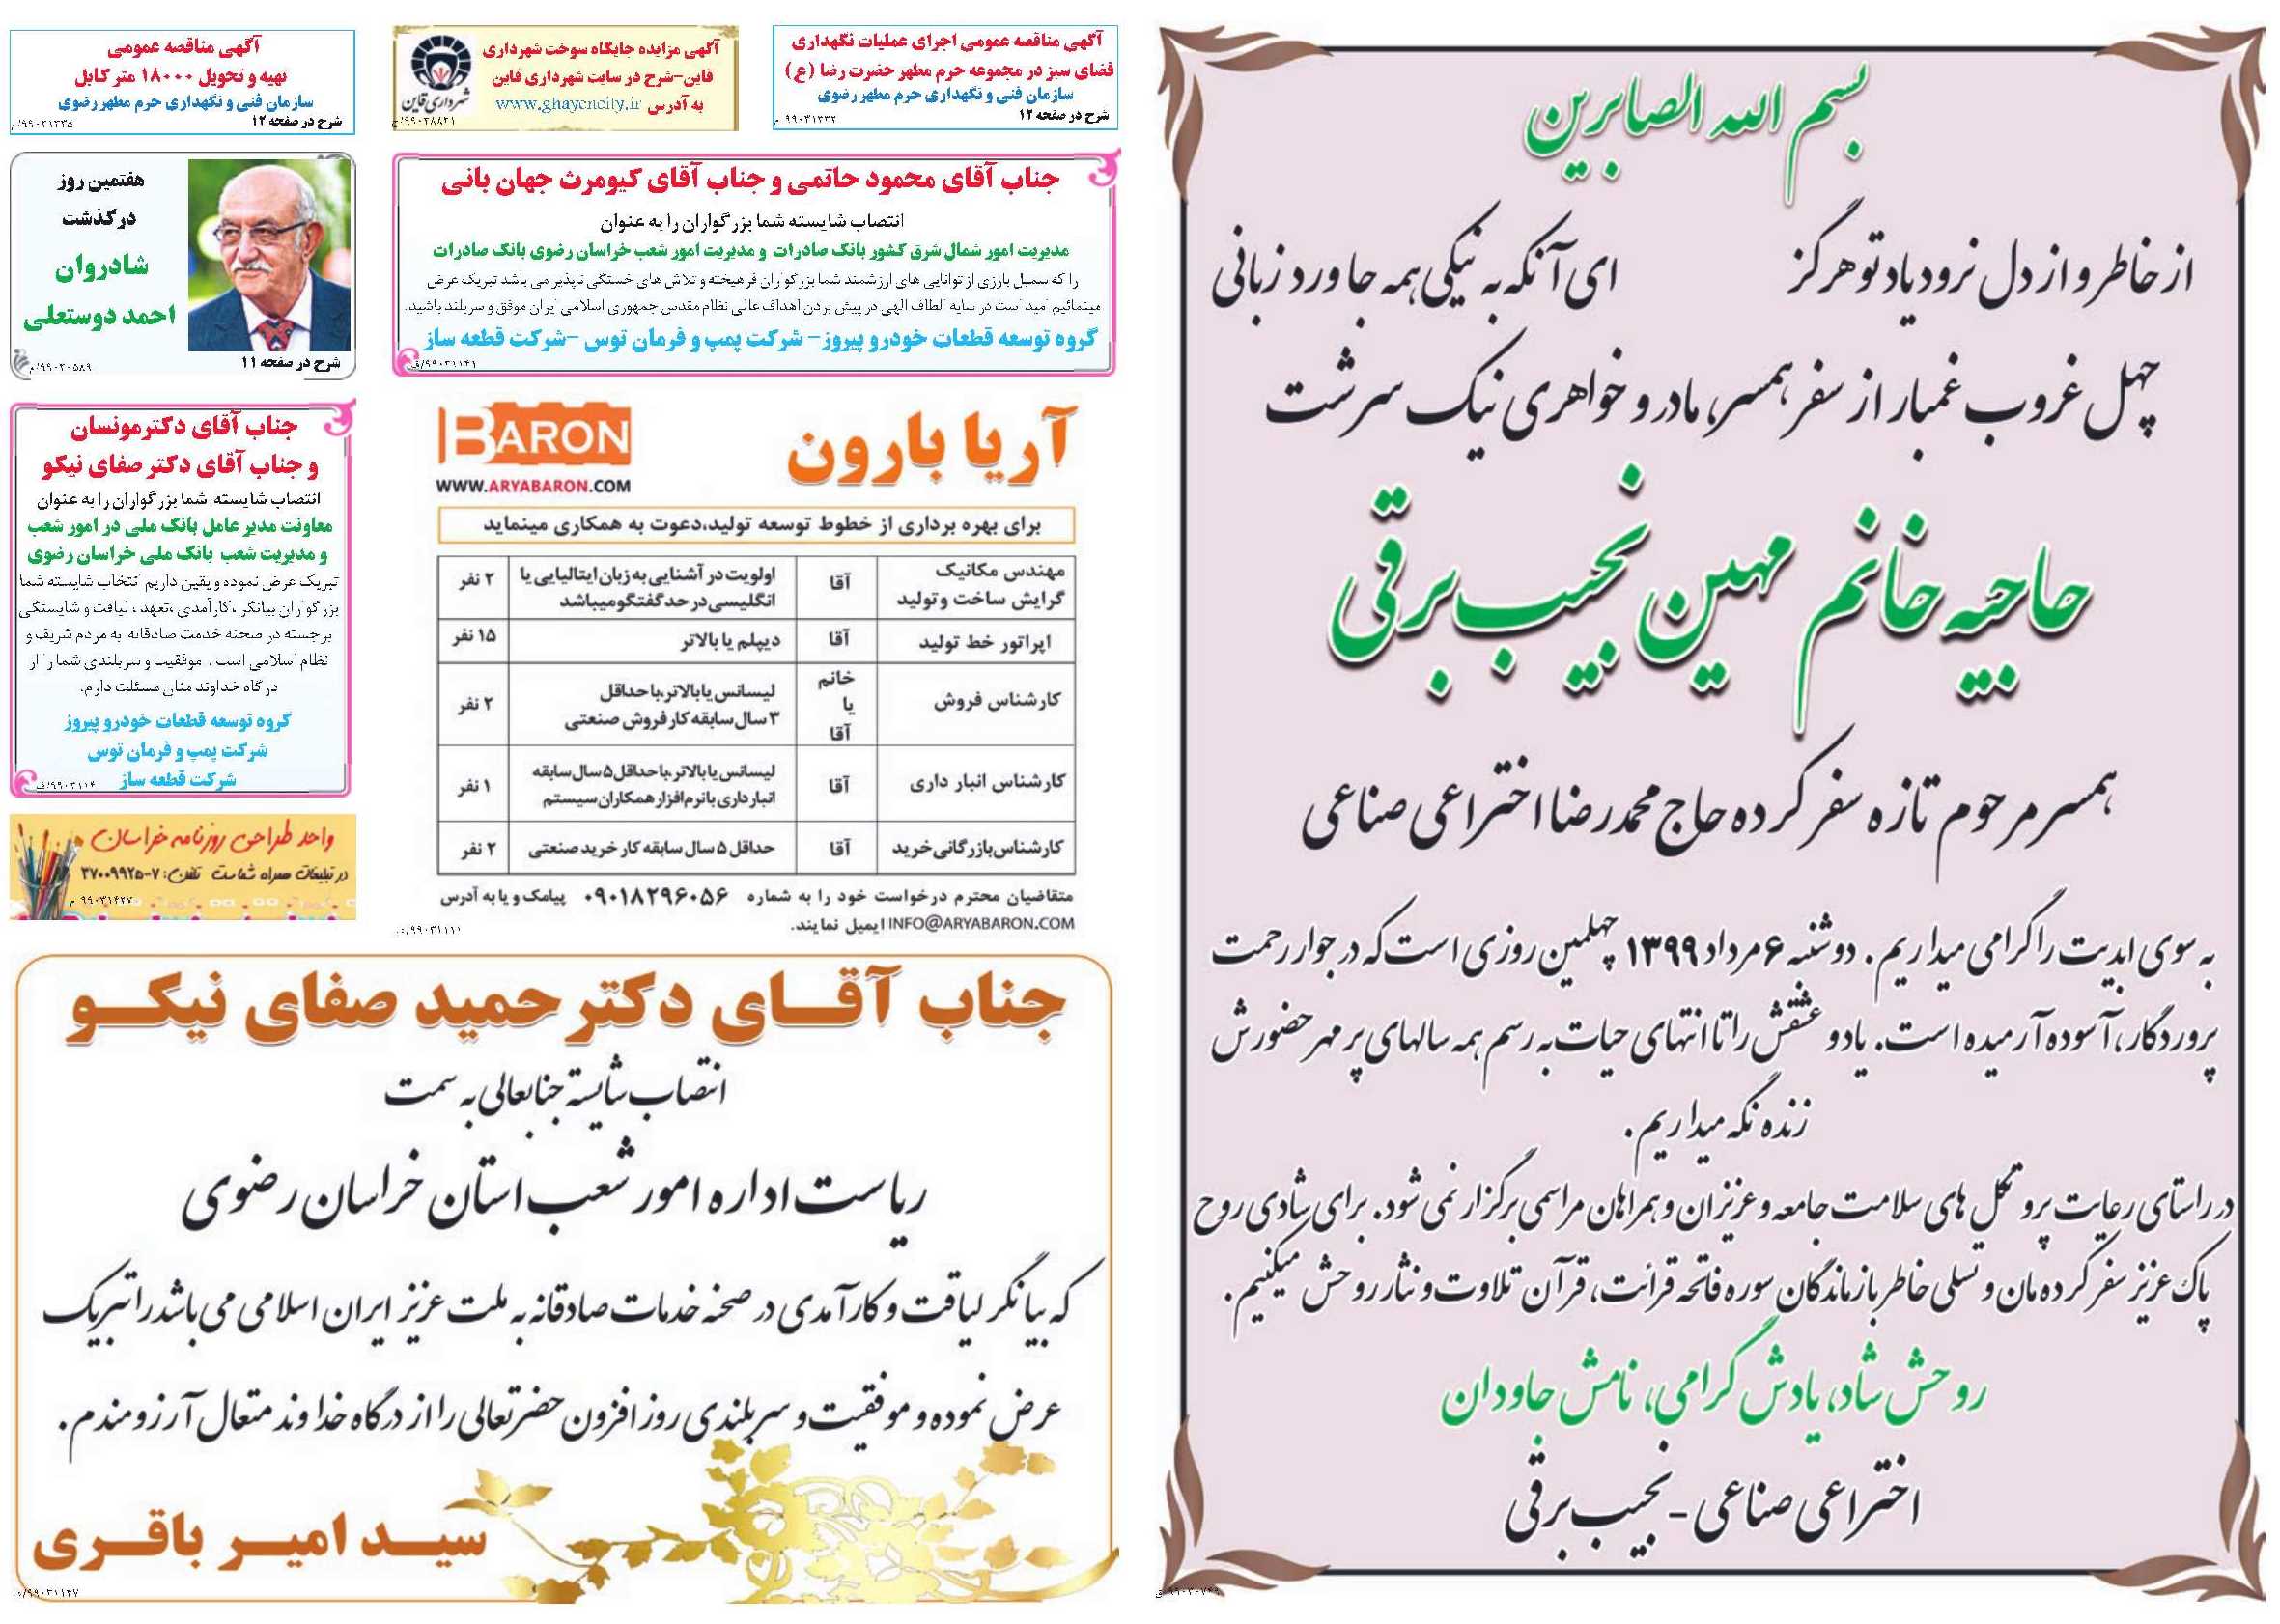 بسم الله الصابرین
از خاطر و از دل نرود یاد تو هرگز ای آنکه به نیکی همه جا ورد زبانی
چهل غروب غمبار از سفر همسر، مادر و خواهری نیک سرشت
حاجیه خانم مهین نجیب برقی
همسر مرحوم تازه سفر کرده حاج محمدرضا اختراعی صناعی
به سوی ابدیت را گرامی میداریم. دوشنبه ۶ مرداد ۱۳۹۹ چهلمین روزی است که در جوار رحمت
پروردگار، آسوده آرمیده است. یاد و عشقش را تا انتهای حیات به رسم همه سالهای پر مهر حضورش
زنده نگه میداریم.
در راستای رعایت پروتکل های سلامت جامعه و عزیزان و همراهان مراسمی برگزار نمی شود. برای شادی روح
پاک عزیز سفر کرده مان و تسلی خاطر بازماندگان سوره فاتحه قرائت، قرآن تلاوت و نثار روحش میکنیم.
روحش شاد، یادش گرامی، نامش جاودان
اختراعی صناعی - نجیب برقی
آگهی مناقصه عمومی اجرای عملیات نگهداری
فضای سبز در مجموعه حرم مطهر حضرت رضا (ع)
سازمان فنی و نگهداری حرم مطهر رضوی
شرح در صفحه ۱۲
۹۹۰۳۱۲۳۲ م
آگهی مزایده جایگاه سوخت شهرداری
قاین-شرح در سایت شهرداری قاین
به آدرس www.ghayencity.ir
شهرداری قاین
آگهی مناقصه عمومی
تهیه و تحویل ۱۸۰۰۰ متر کابل
سازمان فنی و نگهداری حرم مطهر رضوی
شرح در صفحه ۱۲
۹۹۰۳۱۲۳۵/م
جناب آقای محمود حاتمی و جناب آقای کیومرث جهان بانی
انتصاب شایسته شما بزرگواران را به عنوان
مدیریت امور شمال شرق کشور بانک صادرات و مدیریت امور شعب خراسان رضوی بانک صادرات
را که سمبل بارزی از توانایی های ارزشمند شما بزرگواران فرهیخته و تلاش های خستگی ناپذیر می باشد تبریک عرض
مینمائیم امید است در سایه الطاف الهی در پیش بردن اهداف عالی نظام مقدس جمهوری اسلامی ایران موفق و سربلند باشید.
گروه توسعه قطعات خودرو پیروز- شرکت پمپ و فرمان توس -شرکت قطعه ساز
۹۹۰۳۱۱۴۱/ف
هفتمین روز
درگذشت
شادروان
احمد دوستعلی
شرح در صفحه ۱۱
۹۹۰۳۰۵۸۹/م
جناب آقای دکترمونسان
و جناب آقای دکتر صفای نیکو
انتصاب شایسته شما بزرگواران را به عنوان
معاونت مدیر عامل بانک ملی در امور شعب
و مدیریت شعب بانک ملی خراسان رضوی
تبریک عرض نموده و یقین داریم انتخاب شایسته شما
بزرگواران بیانگر ،کارآمدی ،تعهد ، لیاقت و شایستگی
برجسته در صحنه خدمت صادقانه به مردم شریف و
نظام اسلامی است . موفقیت و سربلندی شما را از
درگاه خداوند منان مسئلت دارم.
گروه توسعه قطعات خودرو پیروز
شرکت پمپ و فرمان توس
شرکت قطعه ساز
۹۹۰۳۱۱۴۰/ف
واحد طراحی روزنامه خراسان
در تبلیغات همراه شماست تلفن: ۷-۳۷۰۰۹۹۲۵
۹۹۰۳۱۴۲۷ م
آریا بارون
BARON
WWW.ARYABARON.COM
برای بهره برداری از خطوط توسعه تولید،دعوت به همکاری مینماید
مهندس مکانیک آقا اولویت در آشنایی به زبان ایتالیایی یا ۲ نفر
گرایش ساخت و تولید انگلیسی در حد گفتگو میباشد
اپراتور خط تولید آقا دیپلم یا بالاتر ۱۵ نفر
کارشناس فروش خانم یا آقا لیسانس یا بالاتر،با حداقل ۲ نفر
۳ سال سابقه کار فروش صنعتی
کارشناس انبار داری آقا لیسانس یا بالاتر،با حداقل ۵ سال سابقه ۱ نفر
انبار داری با نرم افزار همکاران سیستم
کارشناس بازرگانی خرید آقا حداقل ۵ سال سابقه کار خرید صنعتی ۲ نفر
متقاضیان محترم درخواست خود را به شماره ۰۹۰۱۸۲۹۶۰۵۶ پیامک و یا به آدرس
INFO@ARYABARON.COM ایمیل نمایند.
جناب آقـــای دکتر حمید صفای نیکـــو
انتصاب شایسته جنابعالی به سمت
ریاست اداره امور شعب استان خراسان رضوی
که بیانگر لیاقت و کارآمدی در صحنه خدمات صادقانه به ملت عزیز ایران اسلامی می باشد را تبریک
عرض نموده و موفقیت و سربلندی روزافزون حضرتعالی را از درگاه خداوند متعال آرزومندم.
سیــد امیــر باقــری